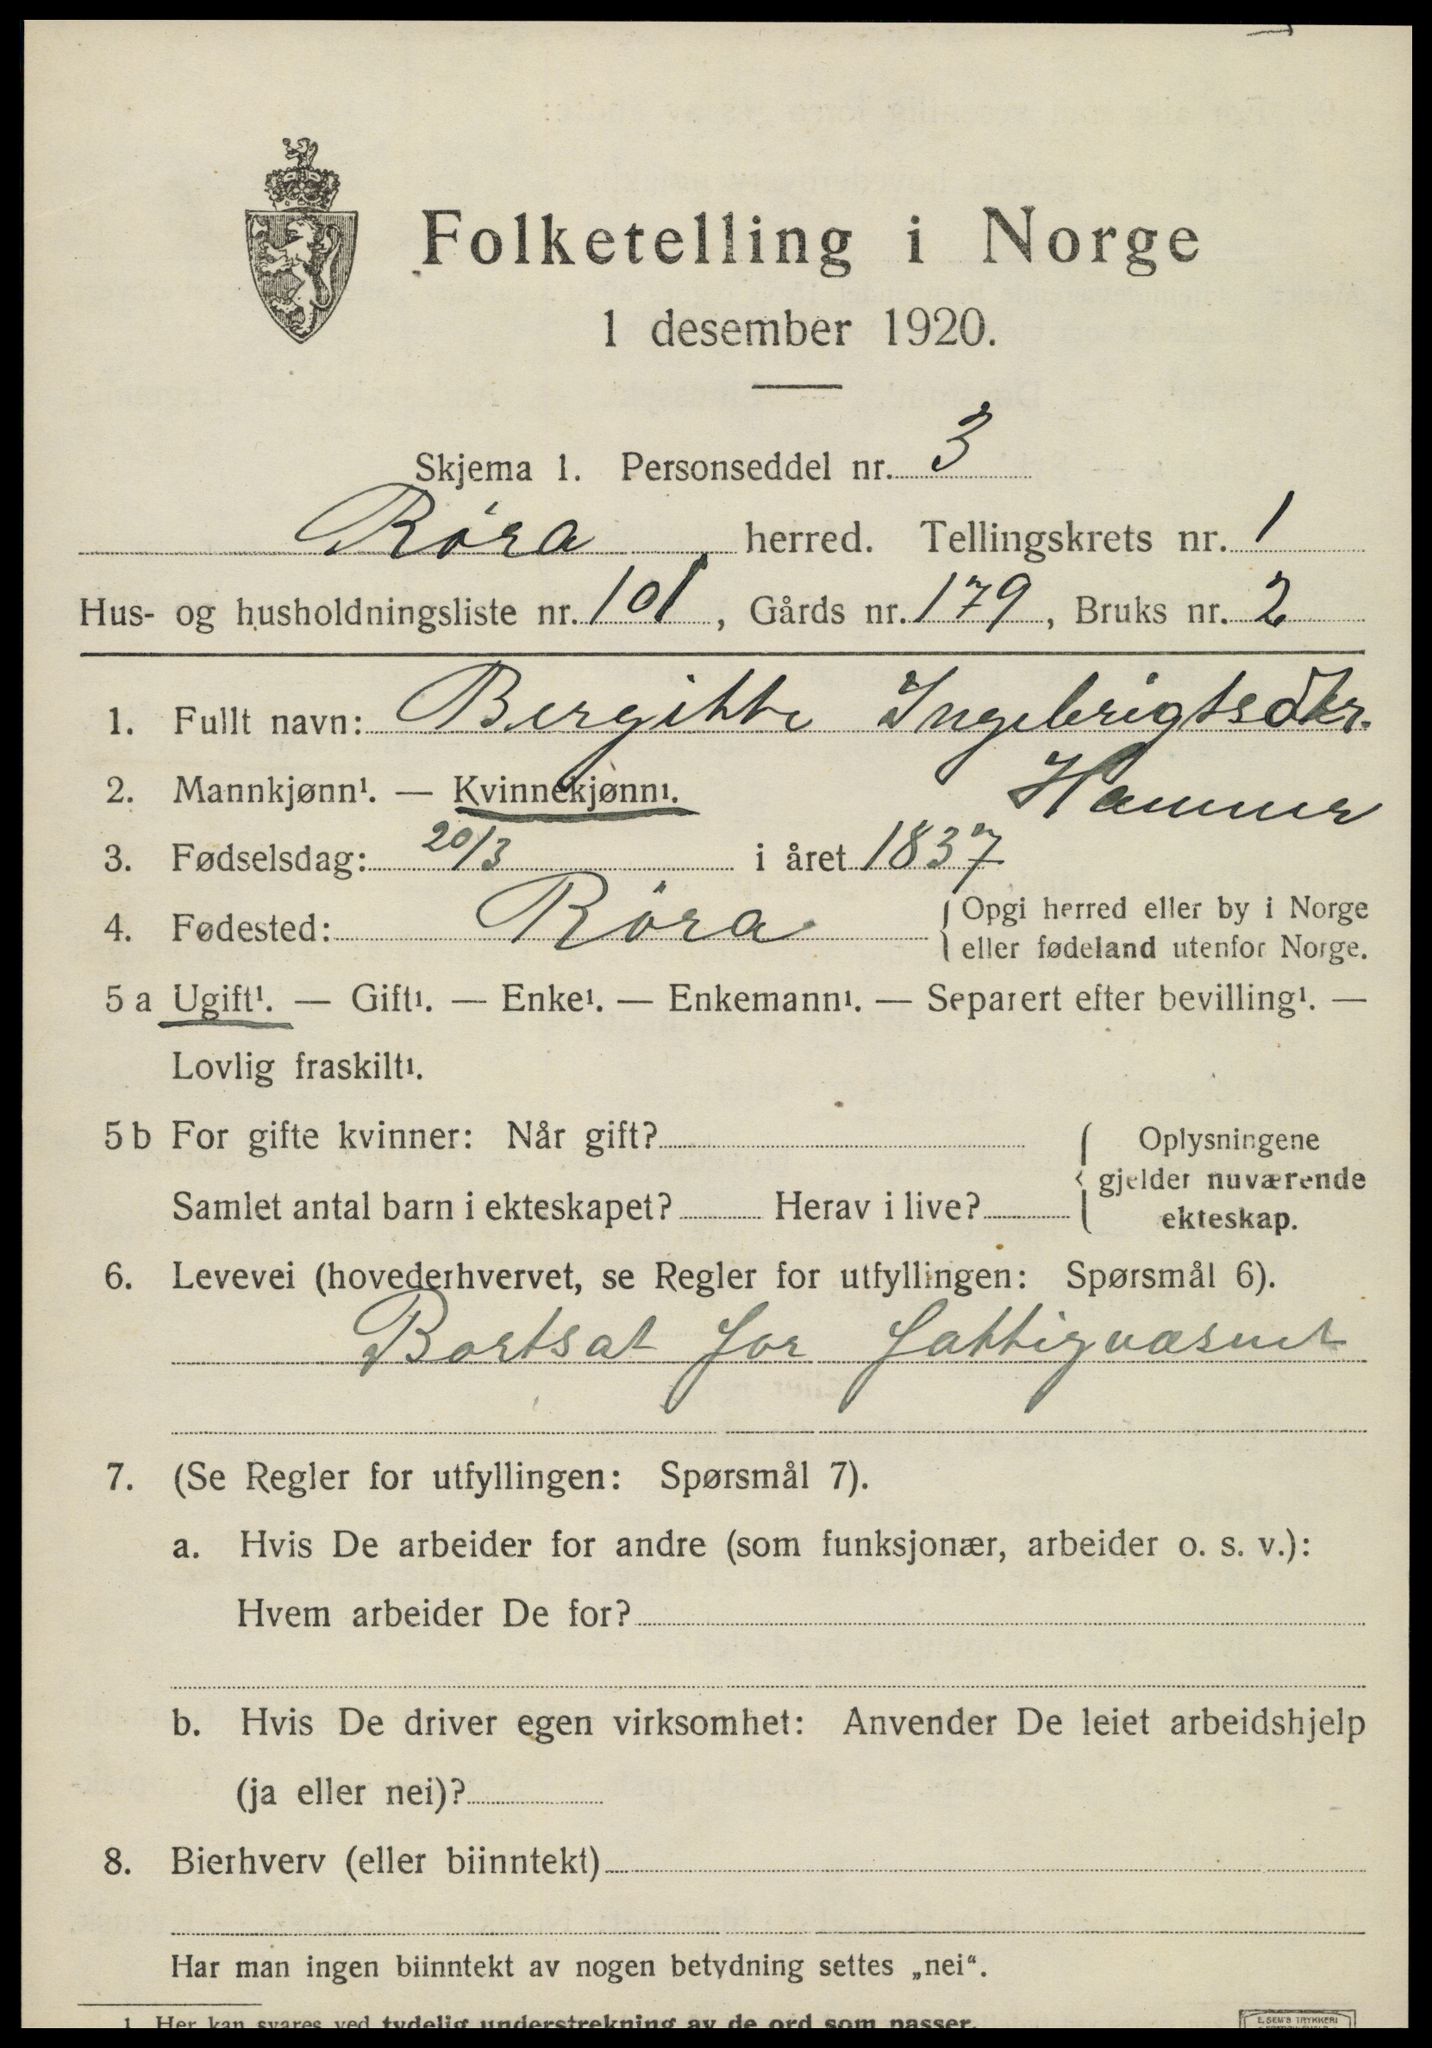 Folketelling i Norge
1 desember 1920.
Skjema 1. Personseddel nr. 3
Røra herred. Tellingskrets nr. 1
Hus- og husholdningsliste nr. 101, Gårds nr. 179, Bruks nr. 2
1. Fullt navn: Bergitte Ingebrigtsdtr.
Hammer
2. Mannkjønn¹. — Kvinnekjønn¹.
3. Fødselsdag: 20/3 i året 1837
4. Fødested: Røra { Opgi herred eller by i Norge
eller fødeland utenfor Norge.
5 a Ugift¹. — Gift¹. — Enke¹. — Enkemann¹. — Separert efter bevilling¹. —
Lovlig fraskilt¹.
5 b For gifte kvinner: Når gift? { Oplysningene
gjelder nuværende
Samlet antal barn i ekteskapet? Herav i live? ekteskap.
6. Levevei (hovederhvervet, se Regler for utfyllingen: Spørsmål 6).
Bortsat for fattigvæsnet
7. (Se Regler for utfyllingen: Spørsmål 7).
a. Hvis De arbeider for andre (som funksjonær, arbeider o. s. v.):
Hvem arbeider De for?
b. Hvis De driver egen virksomhet: Anvender De leiet arbeidshjelp
(ja eller nei)?
8. Bierhverv (eller biinntekt)
Har man ingen biinntekt av nogen betydning settes „nei“.
1 Her kan svares ved tydelig understrekning av de ord som passer.
E. SEM'S TRYKKERI